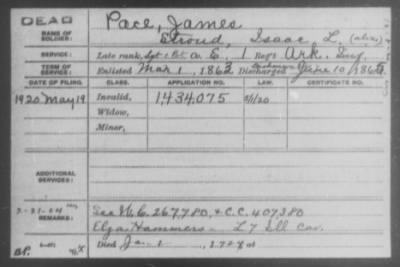 DEAD
NAME OF SOLDIER: Pace, James
Stroud, Isaac L. (alias)
SERVICE: Late rank, Sgt & Pvt Co. E, 1 Reg't Ark. Inf.
TERM OF SERVICE: Enlisted Mar 1, 1863 Discharged June 10, 1865
DATE OF FILING. CLASS. APPLICATION NO. LAW. CERTIFICATE NO.
1920 May 19 Invalid, 1,434,075 5/1/20
Widow,
Minor,
ADDITIONAL SERVICES:
REMARKS: See W.C. 267,780, & C.C. 407,380
Elza Hammers - L 7 Ill Cav.
Died Ja